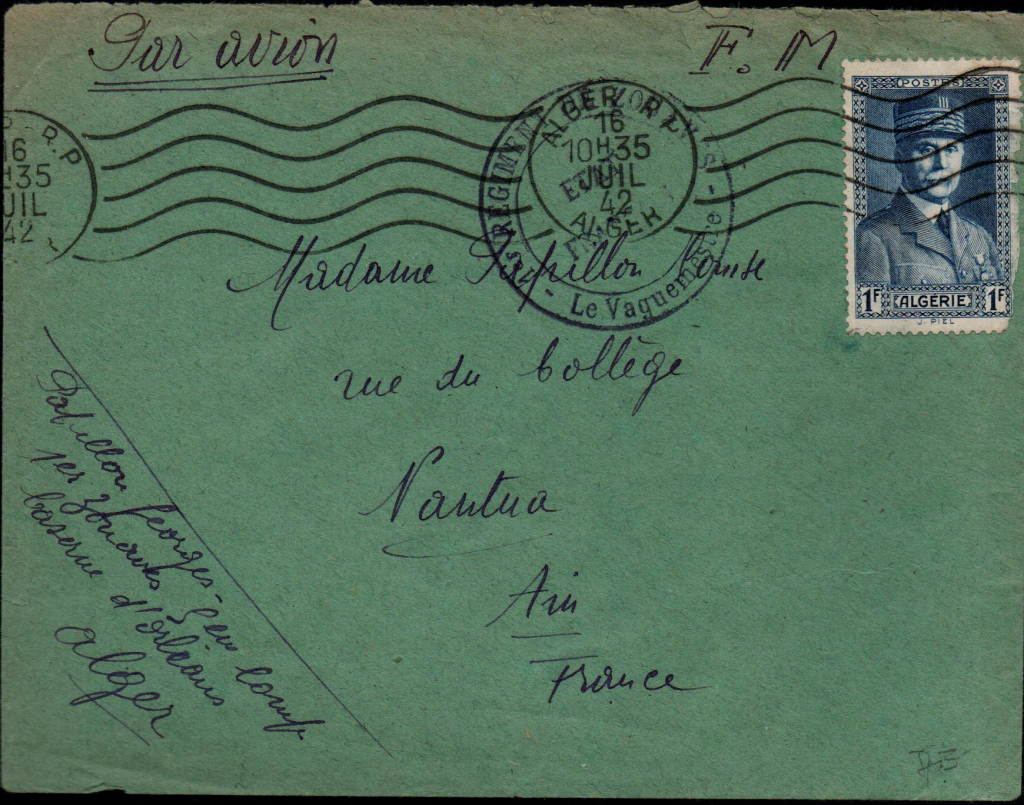 Par avion
F. M
POSTES
R.P
16
H35
JUIL
42
ALGER R.P
16
10H35
JUIL
42
ALGER
1er REGIMENT
- Le Vaguemestre -
1F ALGÉRIE 1F
J. PIEL
Madame Papillon
rue du Collège
Nantua
Ain
France
Papillon Georges
1er zouaves
Caserne d'Orléans
Alger